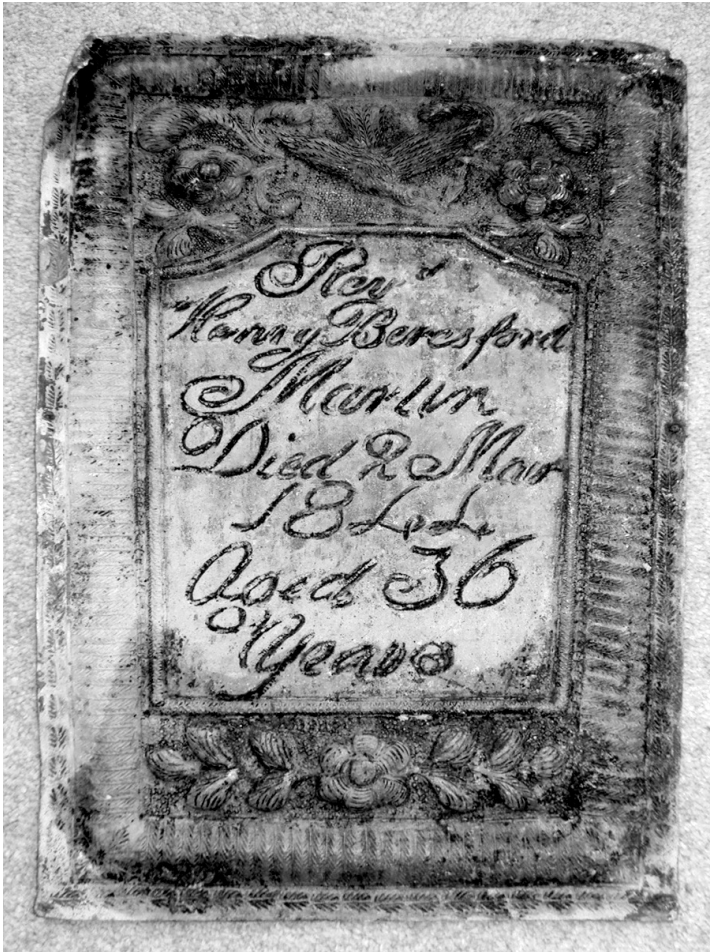 Rev'd
Harry Beresford
Martin
Died 2 Mar
1844
Aged 36
Years